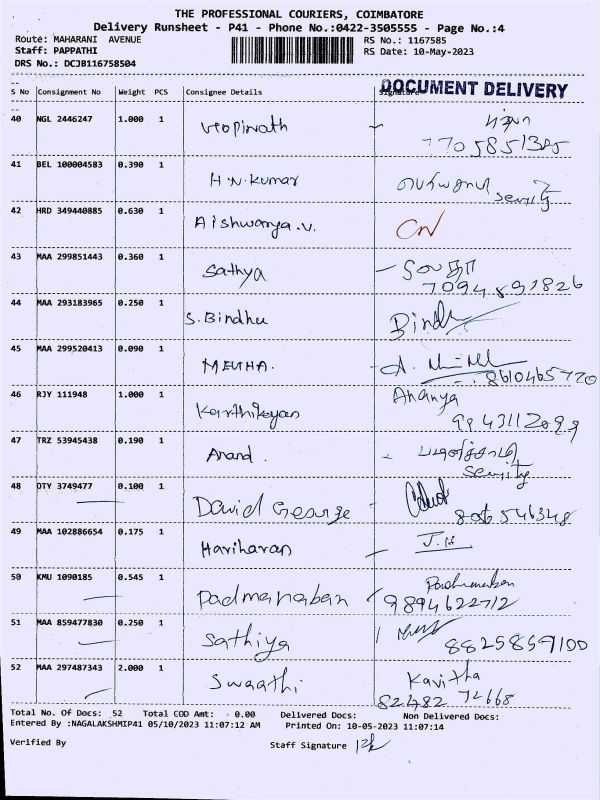 THE PROFESSIONAL COURIERS, COIMBATORE
Delivery Runsheet - P41 - Phone No.:0422-3505555 - Page No.:4
Route: MAHARANI AVENUE
RS No.: 1167585
Staff: PAPPATHI
RS Date: 10-May-2023
DRS No.: DCJB116758504
DOCUMENT DELIVERY
S No Consignment No Weight PCS Consignee Details Signature
40 NGL 2446247 1.000 1
41 BEL 100004583 0.390 1 H.N.Kumar
security
42 HRD 349440885 0.630 1 Aishwarya.V.
43 MAA 299851443 0.360 1 Sathya
7094891826
44 MAA 293183965 0.250 1 S.Bindhu Bindhu
45 MAA 299520413 0.090 1
8610465770
46 RJY 111948 1.000 1 Karthikeyan Ananya
9943112099
47 TRZ 53945438 0.190 1 Anand.
security
48 DTY 3749477 0.100 1 David George
49 MAA 102886654 0.175 1 Hariharan
50 KMU 1090185 0.545 1 Padmanaban Padmanaban
9894622712
51 MAA 859477830 0.250 1 Sathiya
8825859100
52 MAA 297487343 2.000 1 Swaathi Kavitha
82482 72668
Total No. Of Docs: 52 Total COD Amt: 0.00 Delivered Docs: Non Delivered Docs:
Entered By :NAGALAKSHMIP41 05/10/2023 11:07:12 AM Printed On: 10-05-2023 11:07:14
Verified By Staff Signature